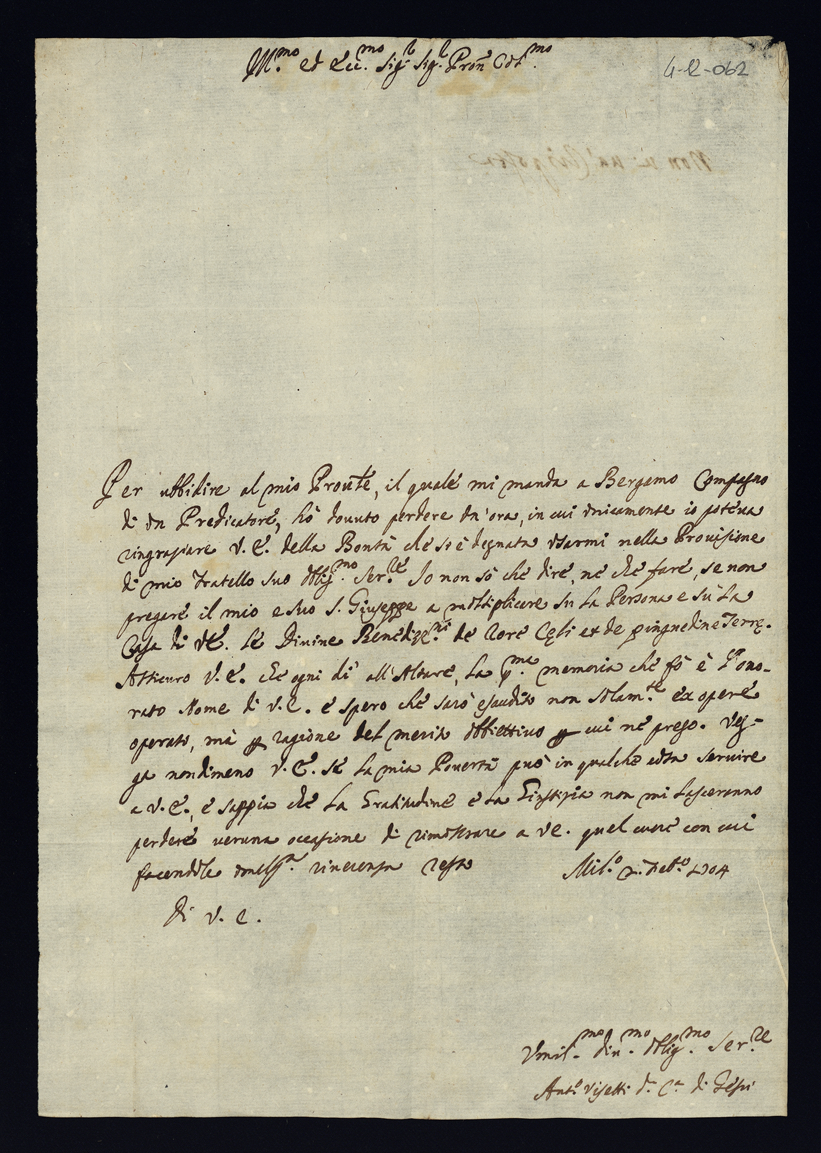 Ill.mo et Ecc.mo Sig.r Sig.r Pron Col.mo
4-12-062
Per ubbidire al mio Pronte, il quale mi manda a Bergamo Compagno
di un Predicatore, hò douuto perdere un'ora, in cui unicamente io poteua
ringraziare V. E. della Bontà che si è degnata usarmi nella Prouisione
di mio Fratello suo Oblig.mo Ser.re Io non sò che dire, nè che fare, se non
pregare il mio e suo S. Giuseppe a moltiplicare su la Persona e su la
Casa di VE. le Diuine Benediz.ni de rore Cęli et de pinguedine Terrę.
Assicuro V. E. che ogni dì all'Altare, la p.ma memoria che fò è l'ono-
rato Nome di V. E. e spero che sarò esaudito non solam.te ex opere
operato, mà p ragione del merito obbiettiuo p cui nè prego. Veg-
ga nondimeno V. E. se la mia Pouertà può in qualche cosa seruire
a V. E., e sappia che la Gratitudine e la Giustizia non mi lasceranno
perdere ueruna occasione di rimostrare a VE. quel cuore con cui
facendole umiliss.a riuerenza resto Mil.o 2. Feb.o 1704
Di V. E.
Vmil.mo diu.mo oblig.mo Ser.re
Ant.o Visetti d. C.a di Giesù